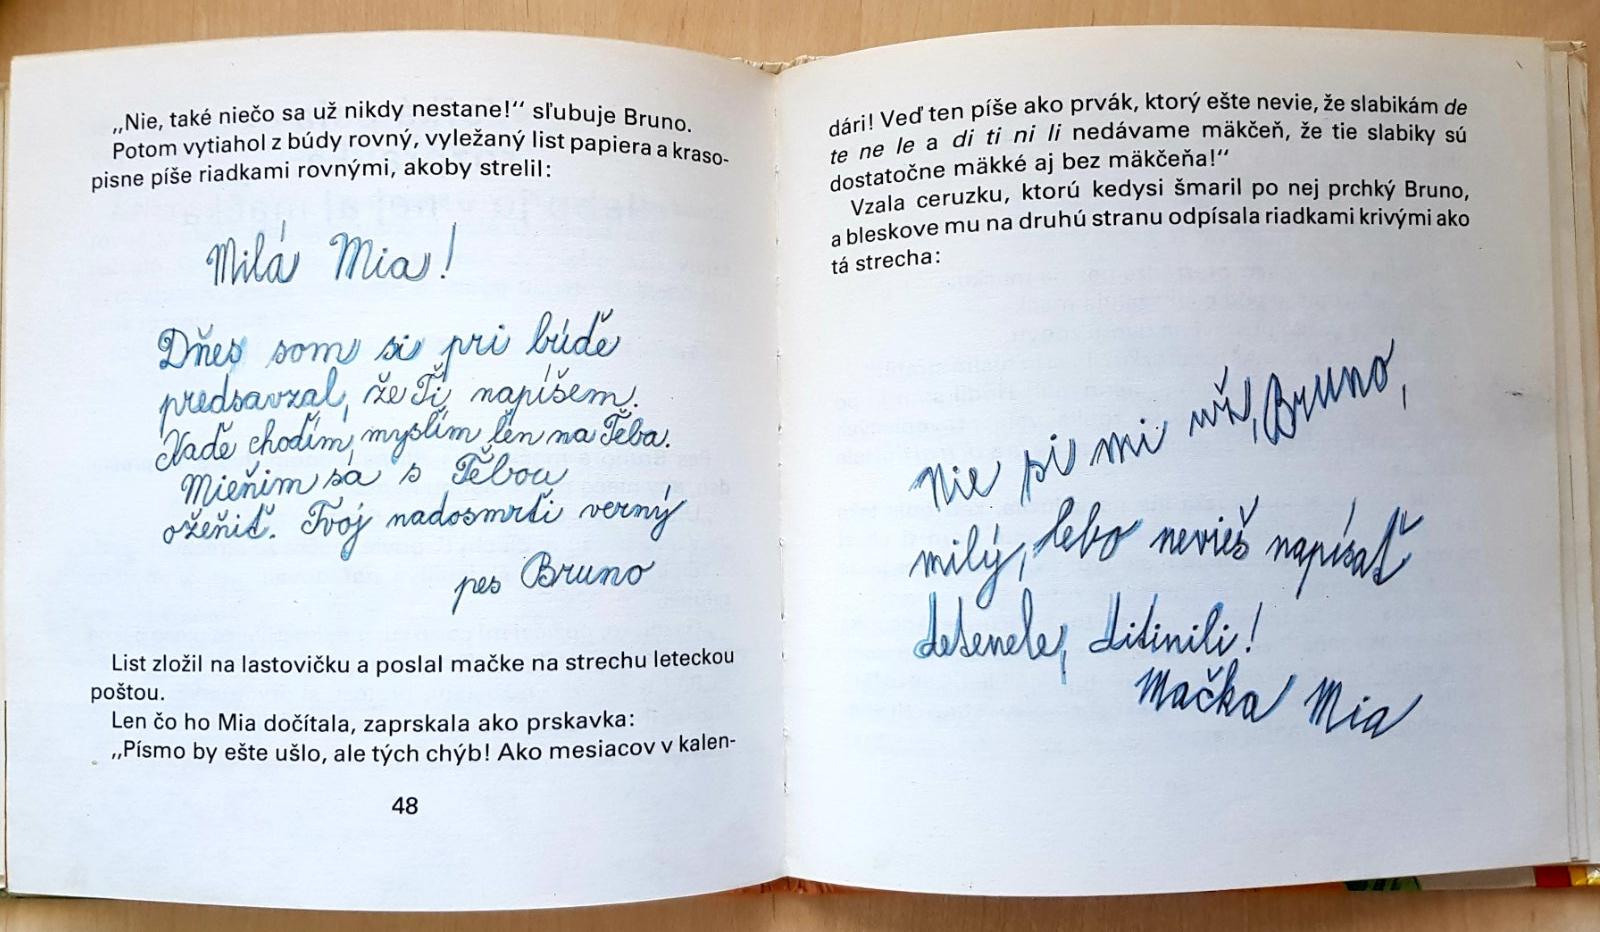 „Nie, také niečo sa už nikdy nestane!“ sľubuje Bruno.
Potom vytiahol z búdy rovný, vyležaný list papiera a kraso-
pisne píše riadkami rovnými, akoby strelil:
Milá Mia!
Dňes som si pri búďe
predsavzal, že Ťi napíšem.
Kaďe choďím, myslím ľen na Ťeba.
Mieňim sa s Ťěbou
ožeňiť. Tvoj nadosmrťi verný
pes Bruno
List zložil na lastovičku a poslal mačke na strechu leteckou
poštou.
Len čo ho Mia dočítala, zaprskala ako prskavka:
„Písmo by ešte ušlo, ale tých chýb! Ako mesiacov v kalen-
48
dári! Veď ten píše ako prvák, ktorý ešte nevie, že slabikám de
te ne le a di ti ni li nedávame mäkčeň, že tie slabiky sú
dostatočne mäkké aj bez mäkčeňa!“
Vzala ceruzku, ktorú kedysi šmaril po nej prchký Bruno,
a bleskove mu na druhú stranu odpísala riadkami krivými ako
tá strecha:
Nie si mi už, Bruno,
milý, lebo nevieš napísať
detenele, ditinili!
Mačka Mia